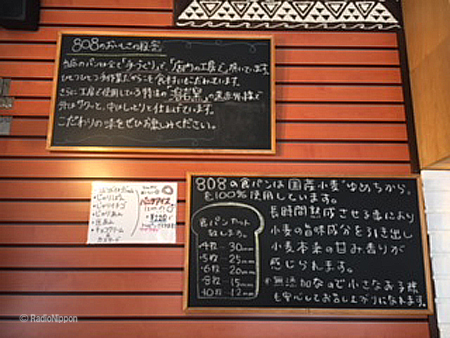 808のおいしさの秘密
当店のパンは全て「手づくり」で、「店内の工房で」焼いています。
ひとつひとつ手作業だからこそ食材にもこだわっています。
さらに工房で使用している特注の「溶岩窯」の遠赤外線で
外はサクッと、中はしっとりと仕上げています。
こだわりの味をぜひお楽しみください。
808の食パンは国産小麦"ゆめちから"
を100%使用しています。
長時間熟成させる事により
小麦の旨味成分を引き出し
小麦本来の甘み・香りが
感じられます。
※無添加なので小さなお子様
も安心してお召し上がりになれます。
食パンカット
致します。
4枚 - 30mm
5枚 - 25mm
6枚 - 20mm
8枚 - 15mm
10枚 - 12mm
パンアイス
© RadioNippon